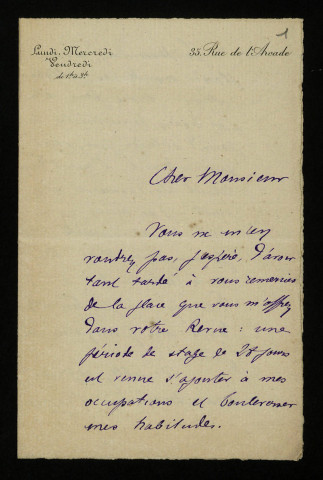 1
Lundi, Mercredi
Vendredi
de 1h à 3h
35, Rue de l'Arcade
Cher Monsieur
Vous ne m'en
voudrez pas, j'espère, d'avoir
tant tardé à vous remercier
de la place que vous m'offrez
dans votre Revue : une
période de stage de 28 jours
est venue s'ajouter à mes
occupations et bouleverser
mes habitudes.